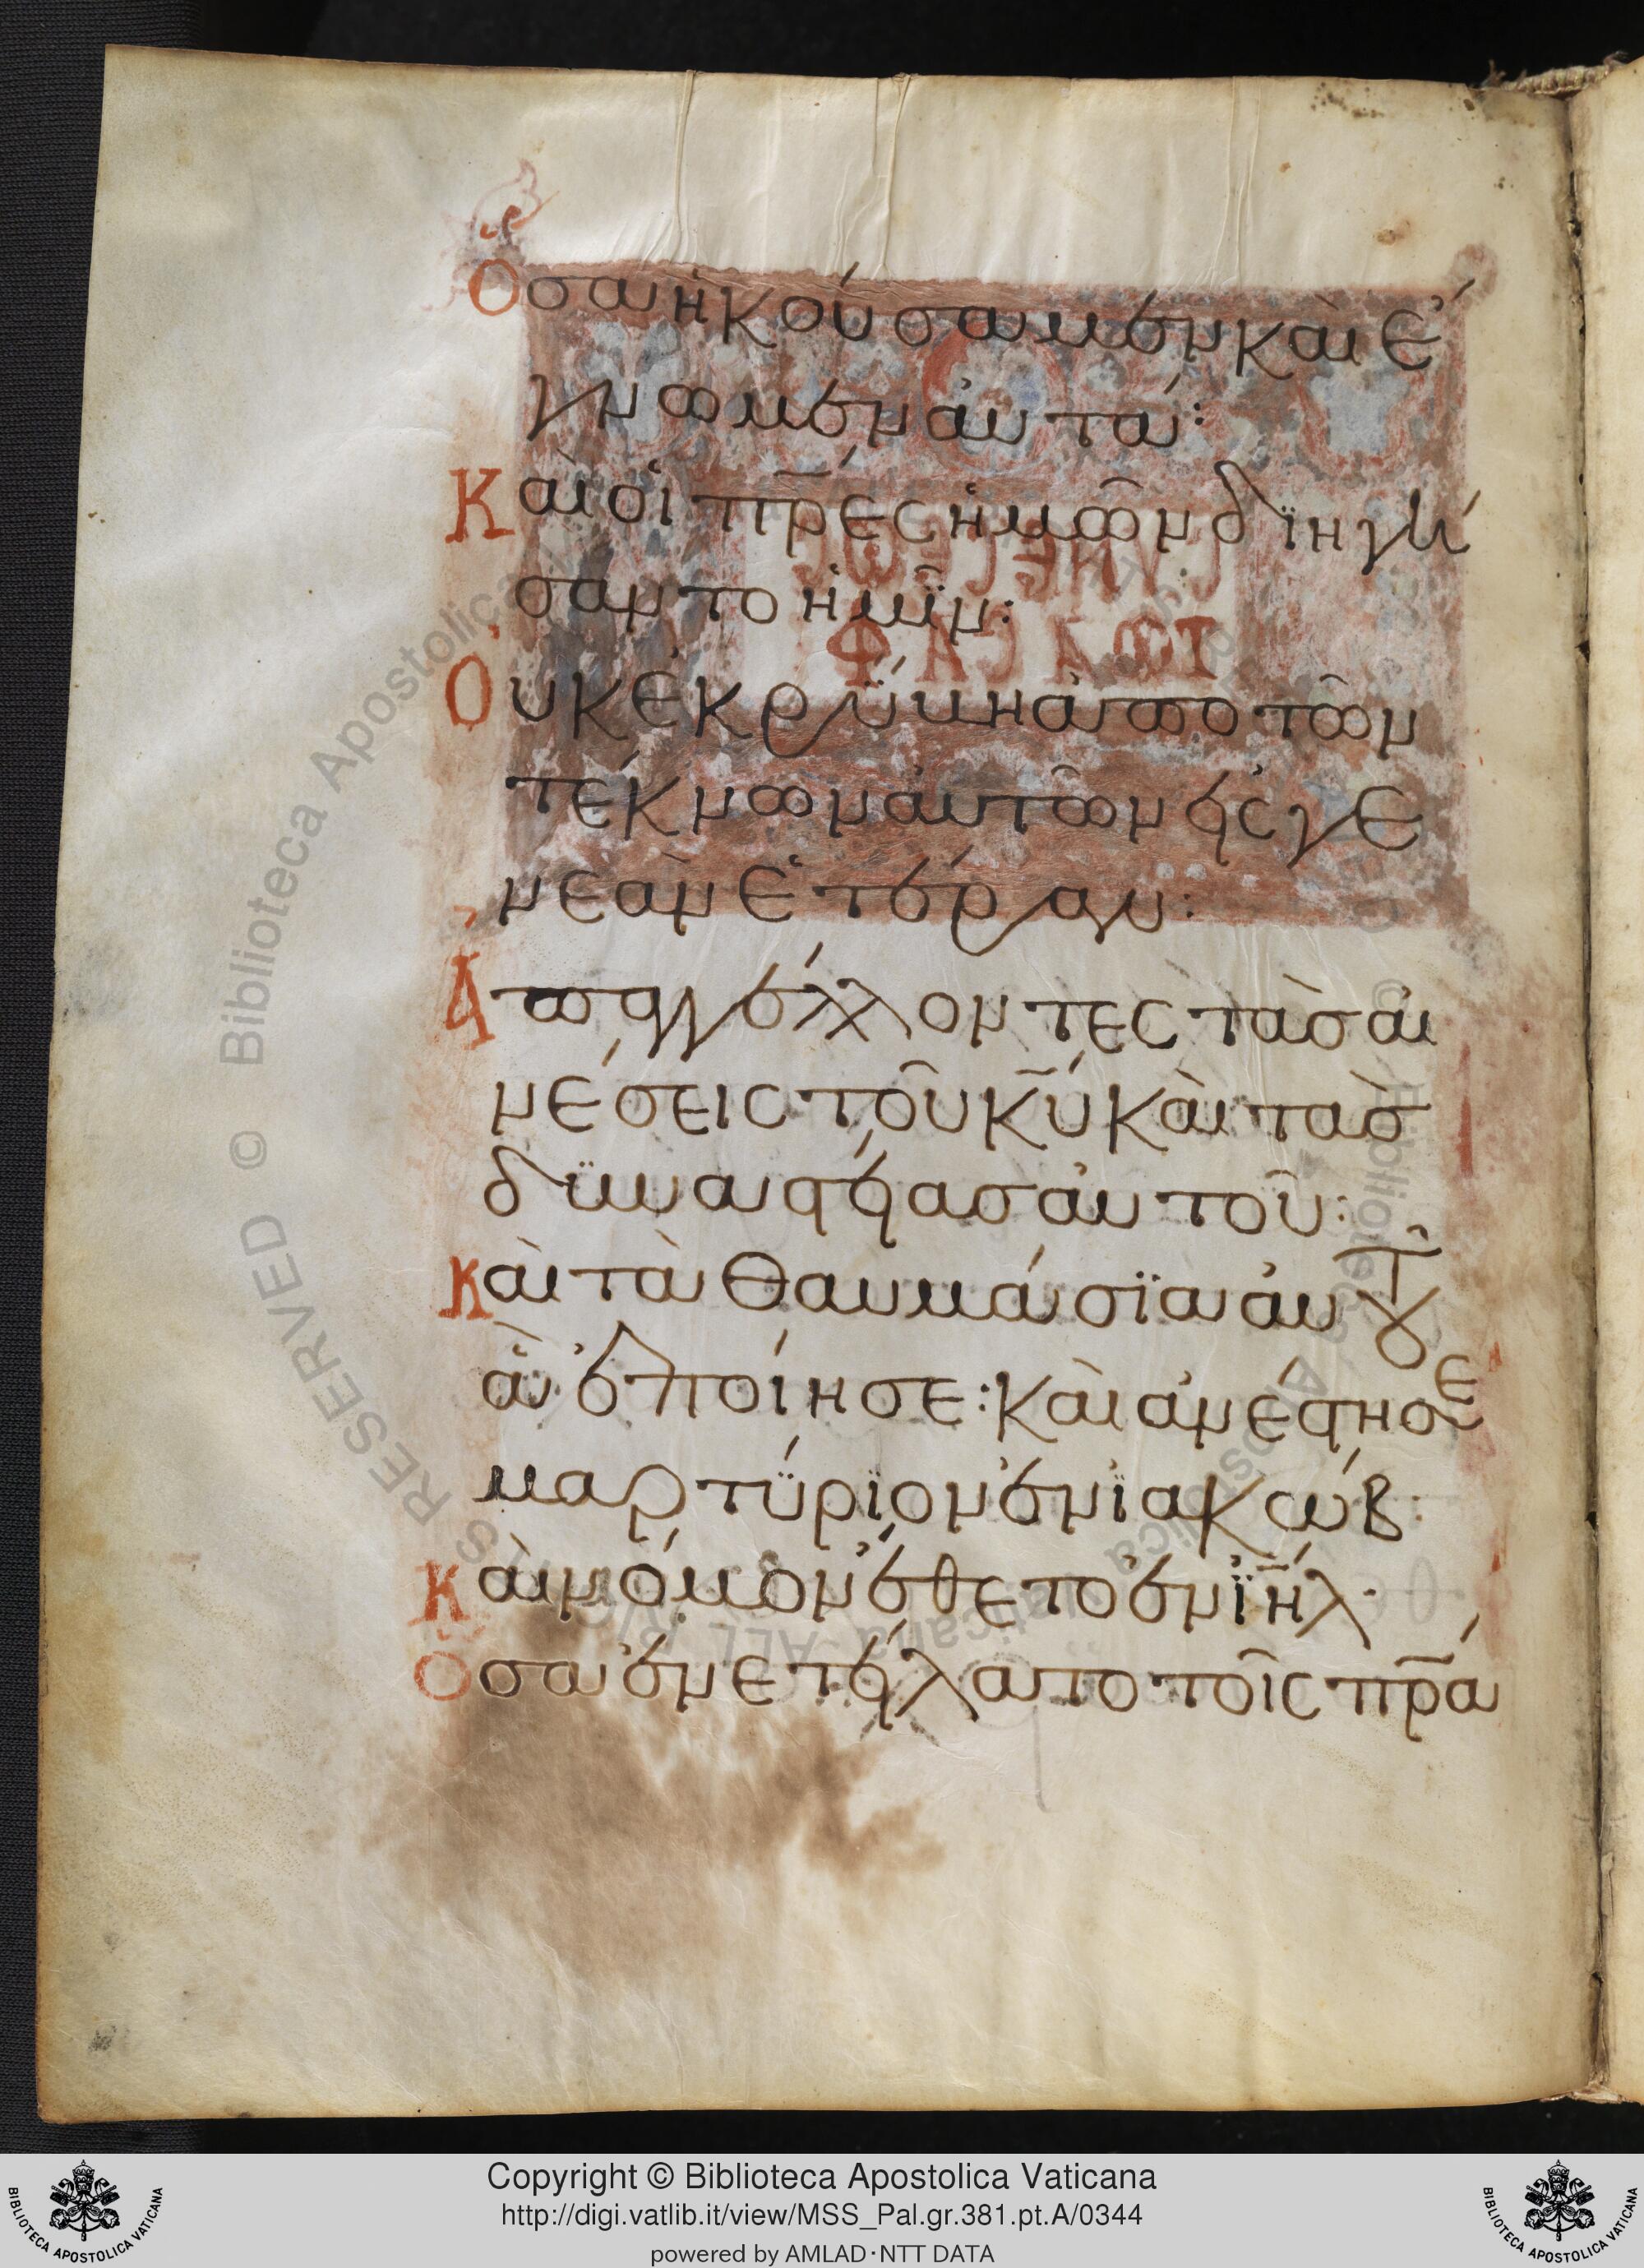 Ὅσα ἠκούσαμεν καὶ ἔ
γνωμεν αὐτά:
Καὶ οἱ πρ̅ες ἡμῶν διηγή
σαντο ἡμῖν:
Οὐκ ἐκρύβη ἀπὸ τῶν
τέκνων αὐτῶν εἰς γε
νεὰν ἑτέραν:
Ἀπαγγέλλοντες τὰσ αἰ
νέσεις τοῦ κ̅υ̅ καὶ τὰσ
δυναστείασ αὐτοῦ:
Καὶ τὰ θαυμάσϊα αὐτοῦ
ἃ ἐποίησε: καὶ ἀνέστησε
μαρτύρϊον ἐν ϊακώβ:
Καὶ νόμον ἔθετο ἐν ϊη̅λ·
Ὅσα ἐνετείλατο τοῖς πρ̅ά
Copyright © Biblioteca Apostolica Vaticana
http://digi.vatlib.it/view/MSS_Pal.gr.381.pt.A/0344
powered by AMLAD·NTT DATA
BIBLIOTECA APOSTOLICA VATICANA
BIBLIOTECA APOSTOLICA VATICANA